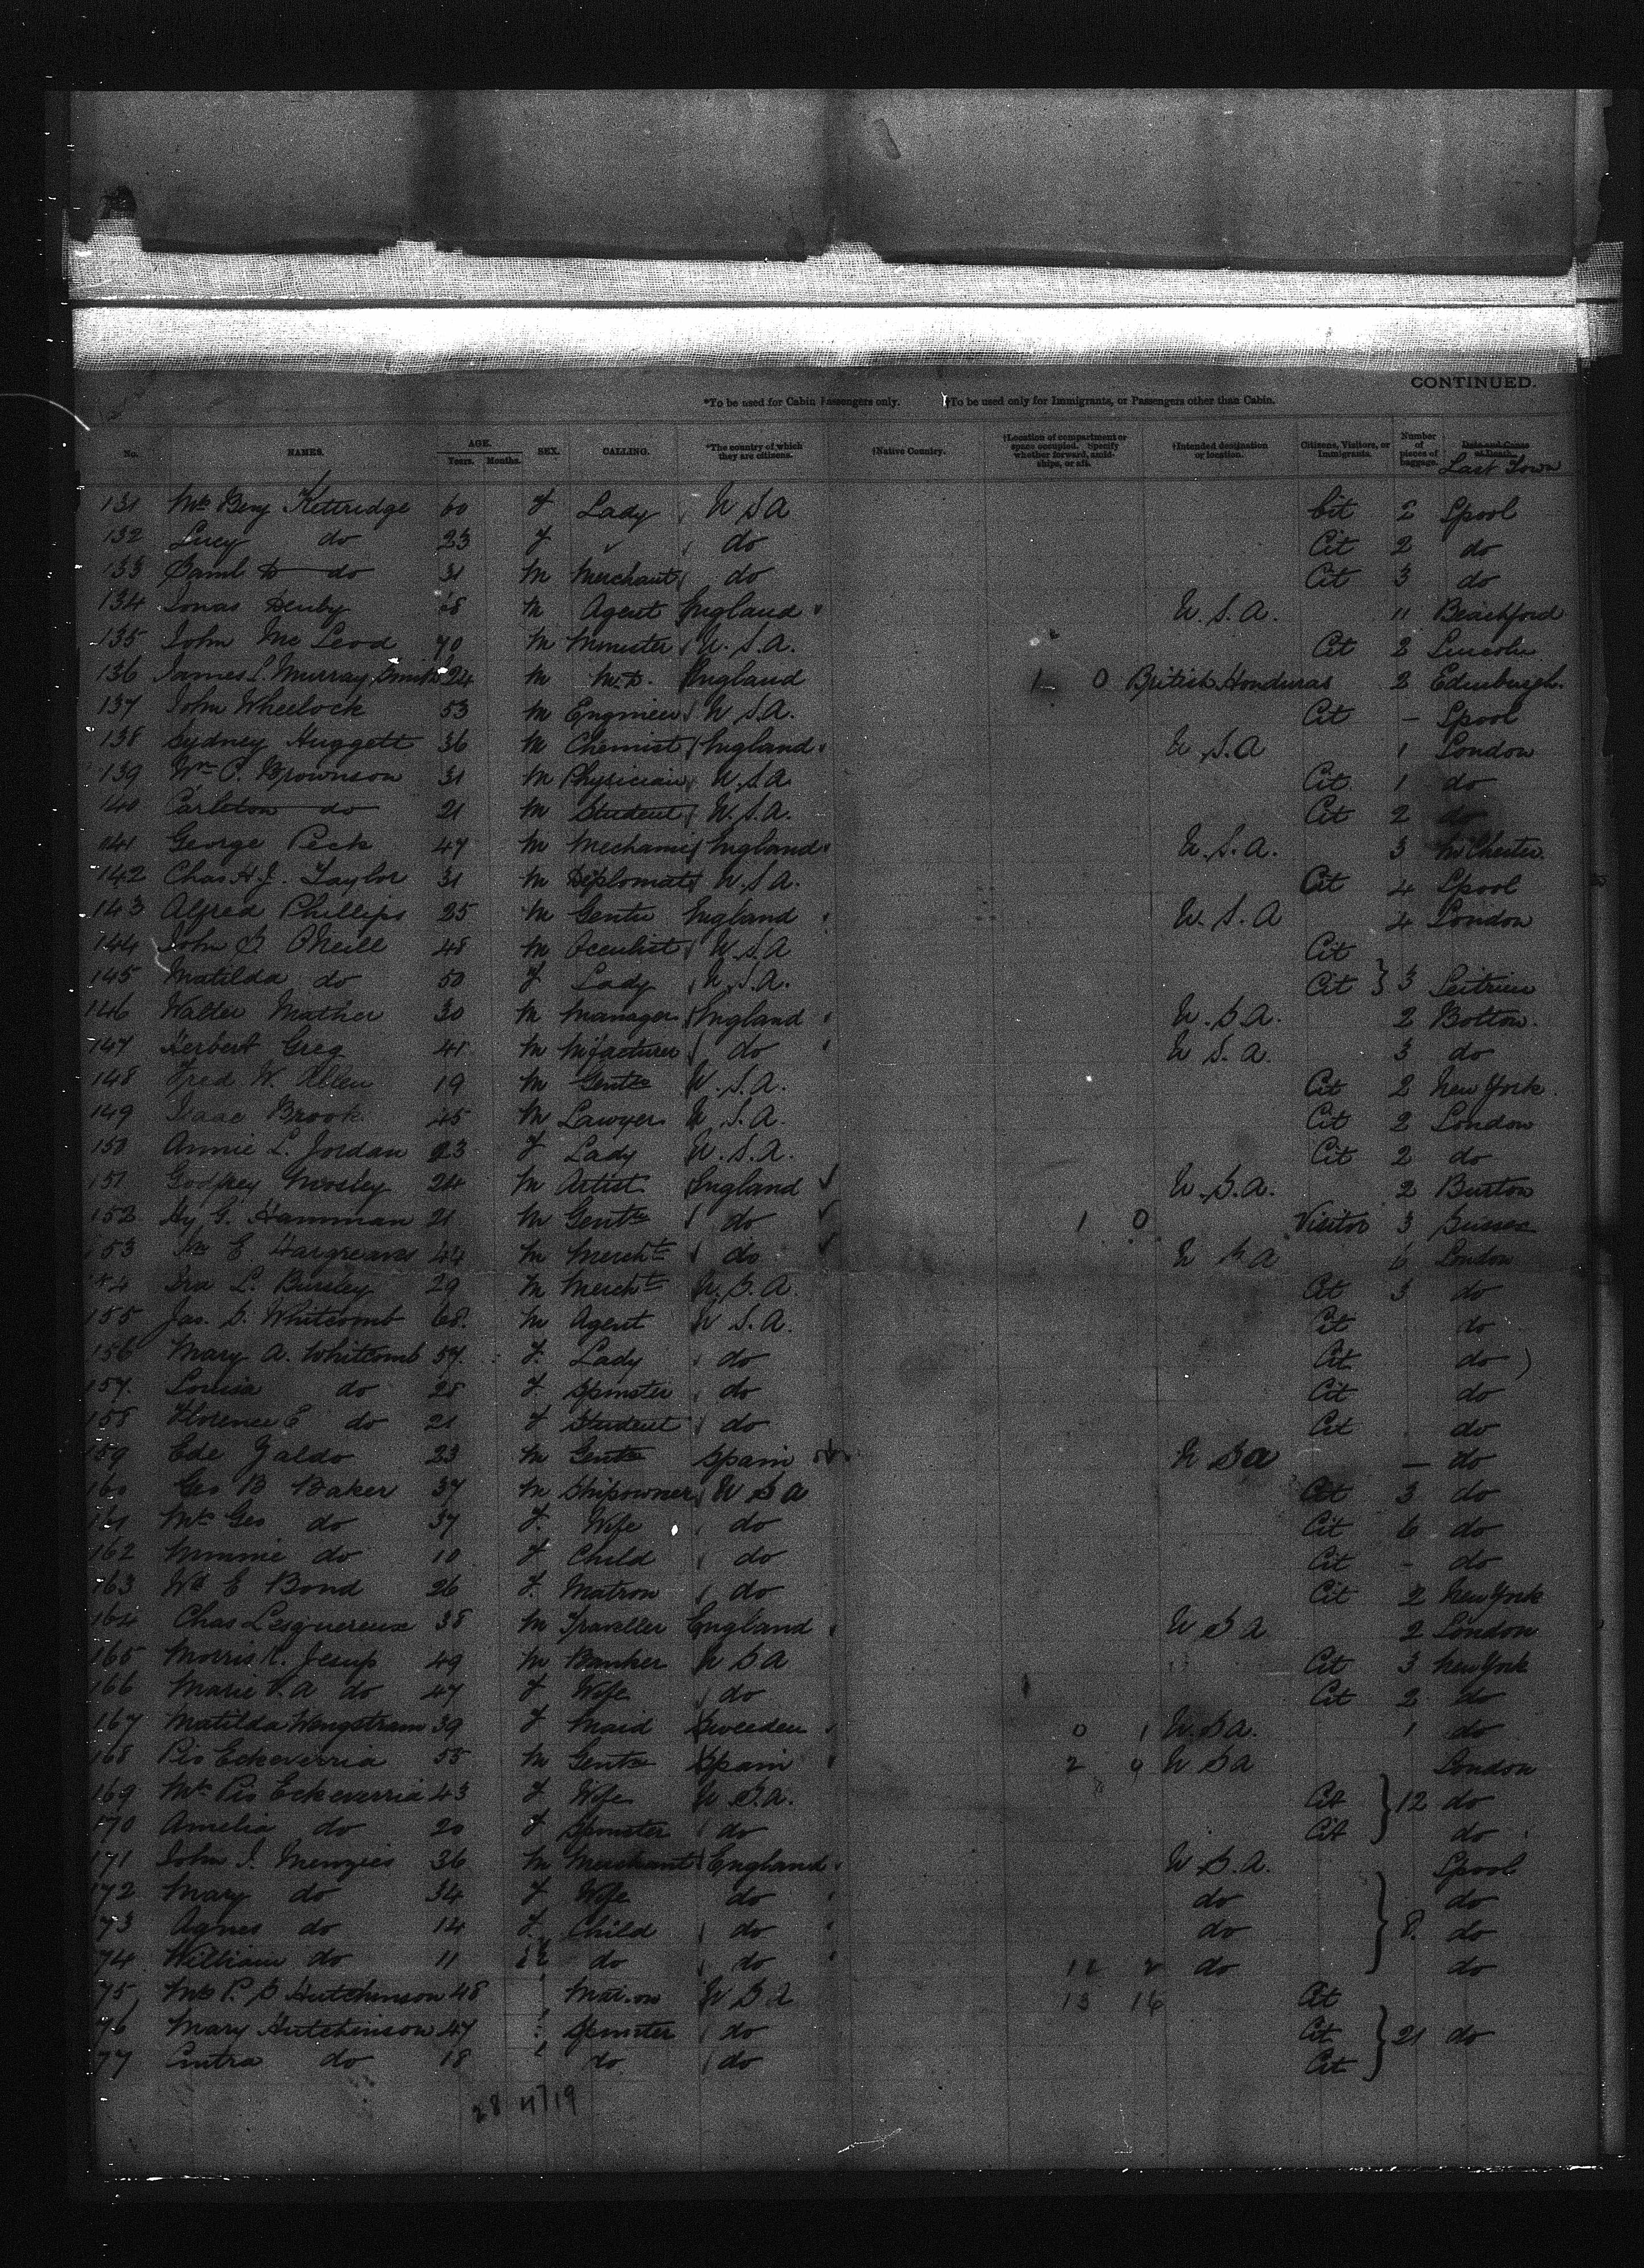 CONTINUED.
*To be used for Cabin Passengers only. †To be used only for Immigrants, or Passengers other than Cabin.
No. NAMES. AGE. Years. Months. SEX. CALLING. *The country of which they are citizens. †Native Country. †Location of compartment or space occupied. Specify whether forward, amidships, or aft. †Intended destination or location. Citizens, Visitors, or Immigrants. Number of pieces of baggage. Date and Cause of Death. Last Town
131 Mrs Benj Kittridge 60 F Lady U S A Cit 2 Lpool
132 Lucy do 23 F do Cit 2 do
133 Saml do 31 M Merchant do Cit 3 do
134 Jonas Denby M Agent England U.S.A. 11
135 John Mc Leod 70 M Minister U.S.A. Cit 2 Lincoln
136 James L. Murray Smith 24 M M.D. England 1 0 British Honduras 2 Edinburgh.
137 John Wheelock 53 M Engineer U.S.A. Cit - Lpool
138 Sydney Huggett 36 M Chemist England U.S.A 1 London
139 Wm C. Brownson 31 M Physician U.S.A Cit 1 do
140 Carleton do 21 M Student U.S.A. Cit 2 do
141 George Peck 47 M Mechanic England U.S.A. 3 M'Chester.
142 Chas H.J. Taylor 31 M Diplomat U.S.A. Cit 4 Lpool
143 Alfred Phillips 25 M Gentn England U.S.A 4 London
144 John O'Neill 48 M Occulist U.S.A Cit
145 Matilda do 50 F Lady U.S.A. Cit } 3 Leitrim
146 Walter Mather 30 M Manager England U.S.A. 2 Bolton.
147 Herbert Greg 41 M M'facturer do U.S.A. 3 do
148 Fred W. Allen 19 M Gentn U.S.A. Cit 2 New York.
149 Isaac Brook 45 M Lawyer U.S.A. Cit 2 London
150 Annie L. Jordan 23 F Lady U.S.A. Cit 2 do
151 Godfrey Mosley 24 M Artist England U.S.A. 2 Burton
152 Hy G. Hamman 21 M Gentn do 1 0 Visitor 3 Sussex
153 E. Hargreaves 44 M Mercht do U S A 6 London
Ira L. Bursley 29 M Mercht U.S.A. Cit 3 do
155 Jas. S. Whitcomb 68. M Agent U.S.A. Cit do
156 Mary A. Whitcomb 57. F. Lady do Cit do
157. Louisa do 28 F. Spinster do Cit do
158 Florence E do 21 F Student do Cit do
159 Ede Galdo 23 M Gentn Spain U S a — do
160 Geo B Baker 37 M Shipowner U S a Cit 3 do
161 Mrs Geo do 37 F. Wife do Cit 6 do
162 Minnie do 10 F Child do Cit - do
163 E Bond 26 F. Matron do Cit 2 New York
164 Chas Lesquereux 38 M Traveller England U S a 2 London
165 Morris K. Jesup 49 M Banker U S a Cit 3 New York
166 Marie V.A do 47 F Wife do Cit 2 do
167 Matilda Wengstram 39 F Maid Sweeden 0 1 U.S.a. 1 do
168 Pio Echeverria 55 M Gentn Spain 2 U S a London
169 Mrs Pio Echeverria 43 F Wife U.S.a. Cit } 12 do
170 Amelia do 20 F Spinster do Cit do
171 John J. Menzies 36 M Merchant England U.S.A. Lpool
172 Mary do 34 F Wife do do do
173 Agnes do 14 F. Child do do } 8. do
74 William do 11 do do 12 2 do do
75 Mrs P. S Hutchinson 48 Matron U S a 13 16 Cit
76 Mary Hutchinson 47 Spinster do Cit } 21 do
77 Cintra do 18 do do Cit
28 4/19